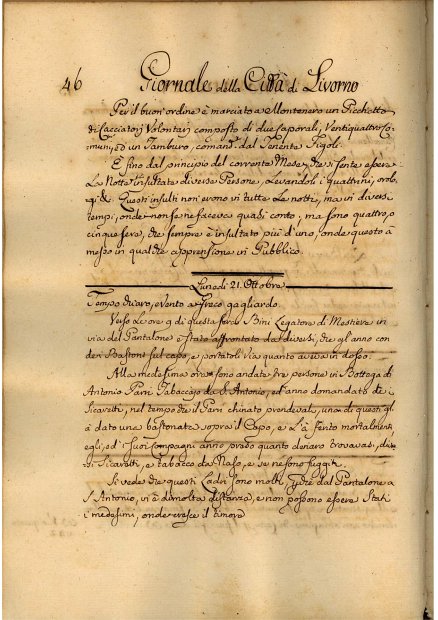 46
Giornale della Città di Livorno
Per il buon'ordine è marciato a Montenero un Picchetto
di Cacciatori Volontari composto di due Caporali, Ventiquattro Co-
muni, ed un Tamburo, comand. dal Tenente Figoli.
E fino dal principio del corrente Mese, che si sente essere
La Notte insultate diverse Persone, Levandoli i quattrini, orolo-
gi &. Questi insulti non erono vi tutte Le notti, ma in diversi
tempi, onde non se ne faceva quasi conto, ma sono quattro, o
cinque sere, che sempre è insultato più d'uno, onde questo à
messo in qualche apprensione in Pubblico.
Lunedì 21. Ottobre
Tempo chiaro, e Vento a Greco gagliardo.
Verso Le ore 9 di questa sera Bini Legatore di Mestiere in
via del Pantalone è stato affrontato da diversi, che gli anno con
deri Bastoni sul capo, e portatoli via quanto aveva in dosso.
Alla medesima ora sono andate tre persone in Bottega di
Antonio Parri Tabaccajo da S. Antonio, ed anno domandato de
Sicaretti, nel tempo che il Parri chinato prendeval, uno di questi gl
à dato una bastonata sopra il Capo, e L'à ferito mortalment
egli, ed i suoi Compagni anno preso quanto denaro trovavasi, de-
di Sicaretti, e tabacco da Naso, e se ne sono fuggiti.
Si vede che questi Ladri sono molti, che dal Pantalone a
S. Antonio, vi è dimolta distanza, e non possono essere Stati
i medesimi, onde cresce il timore